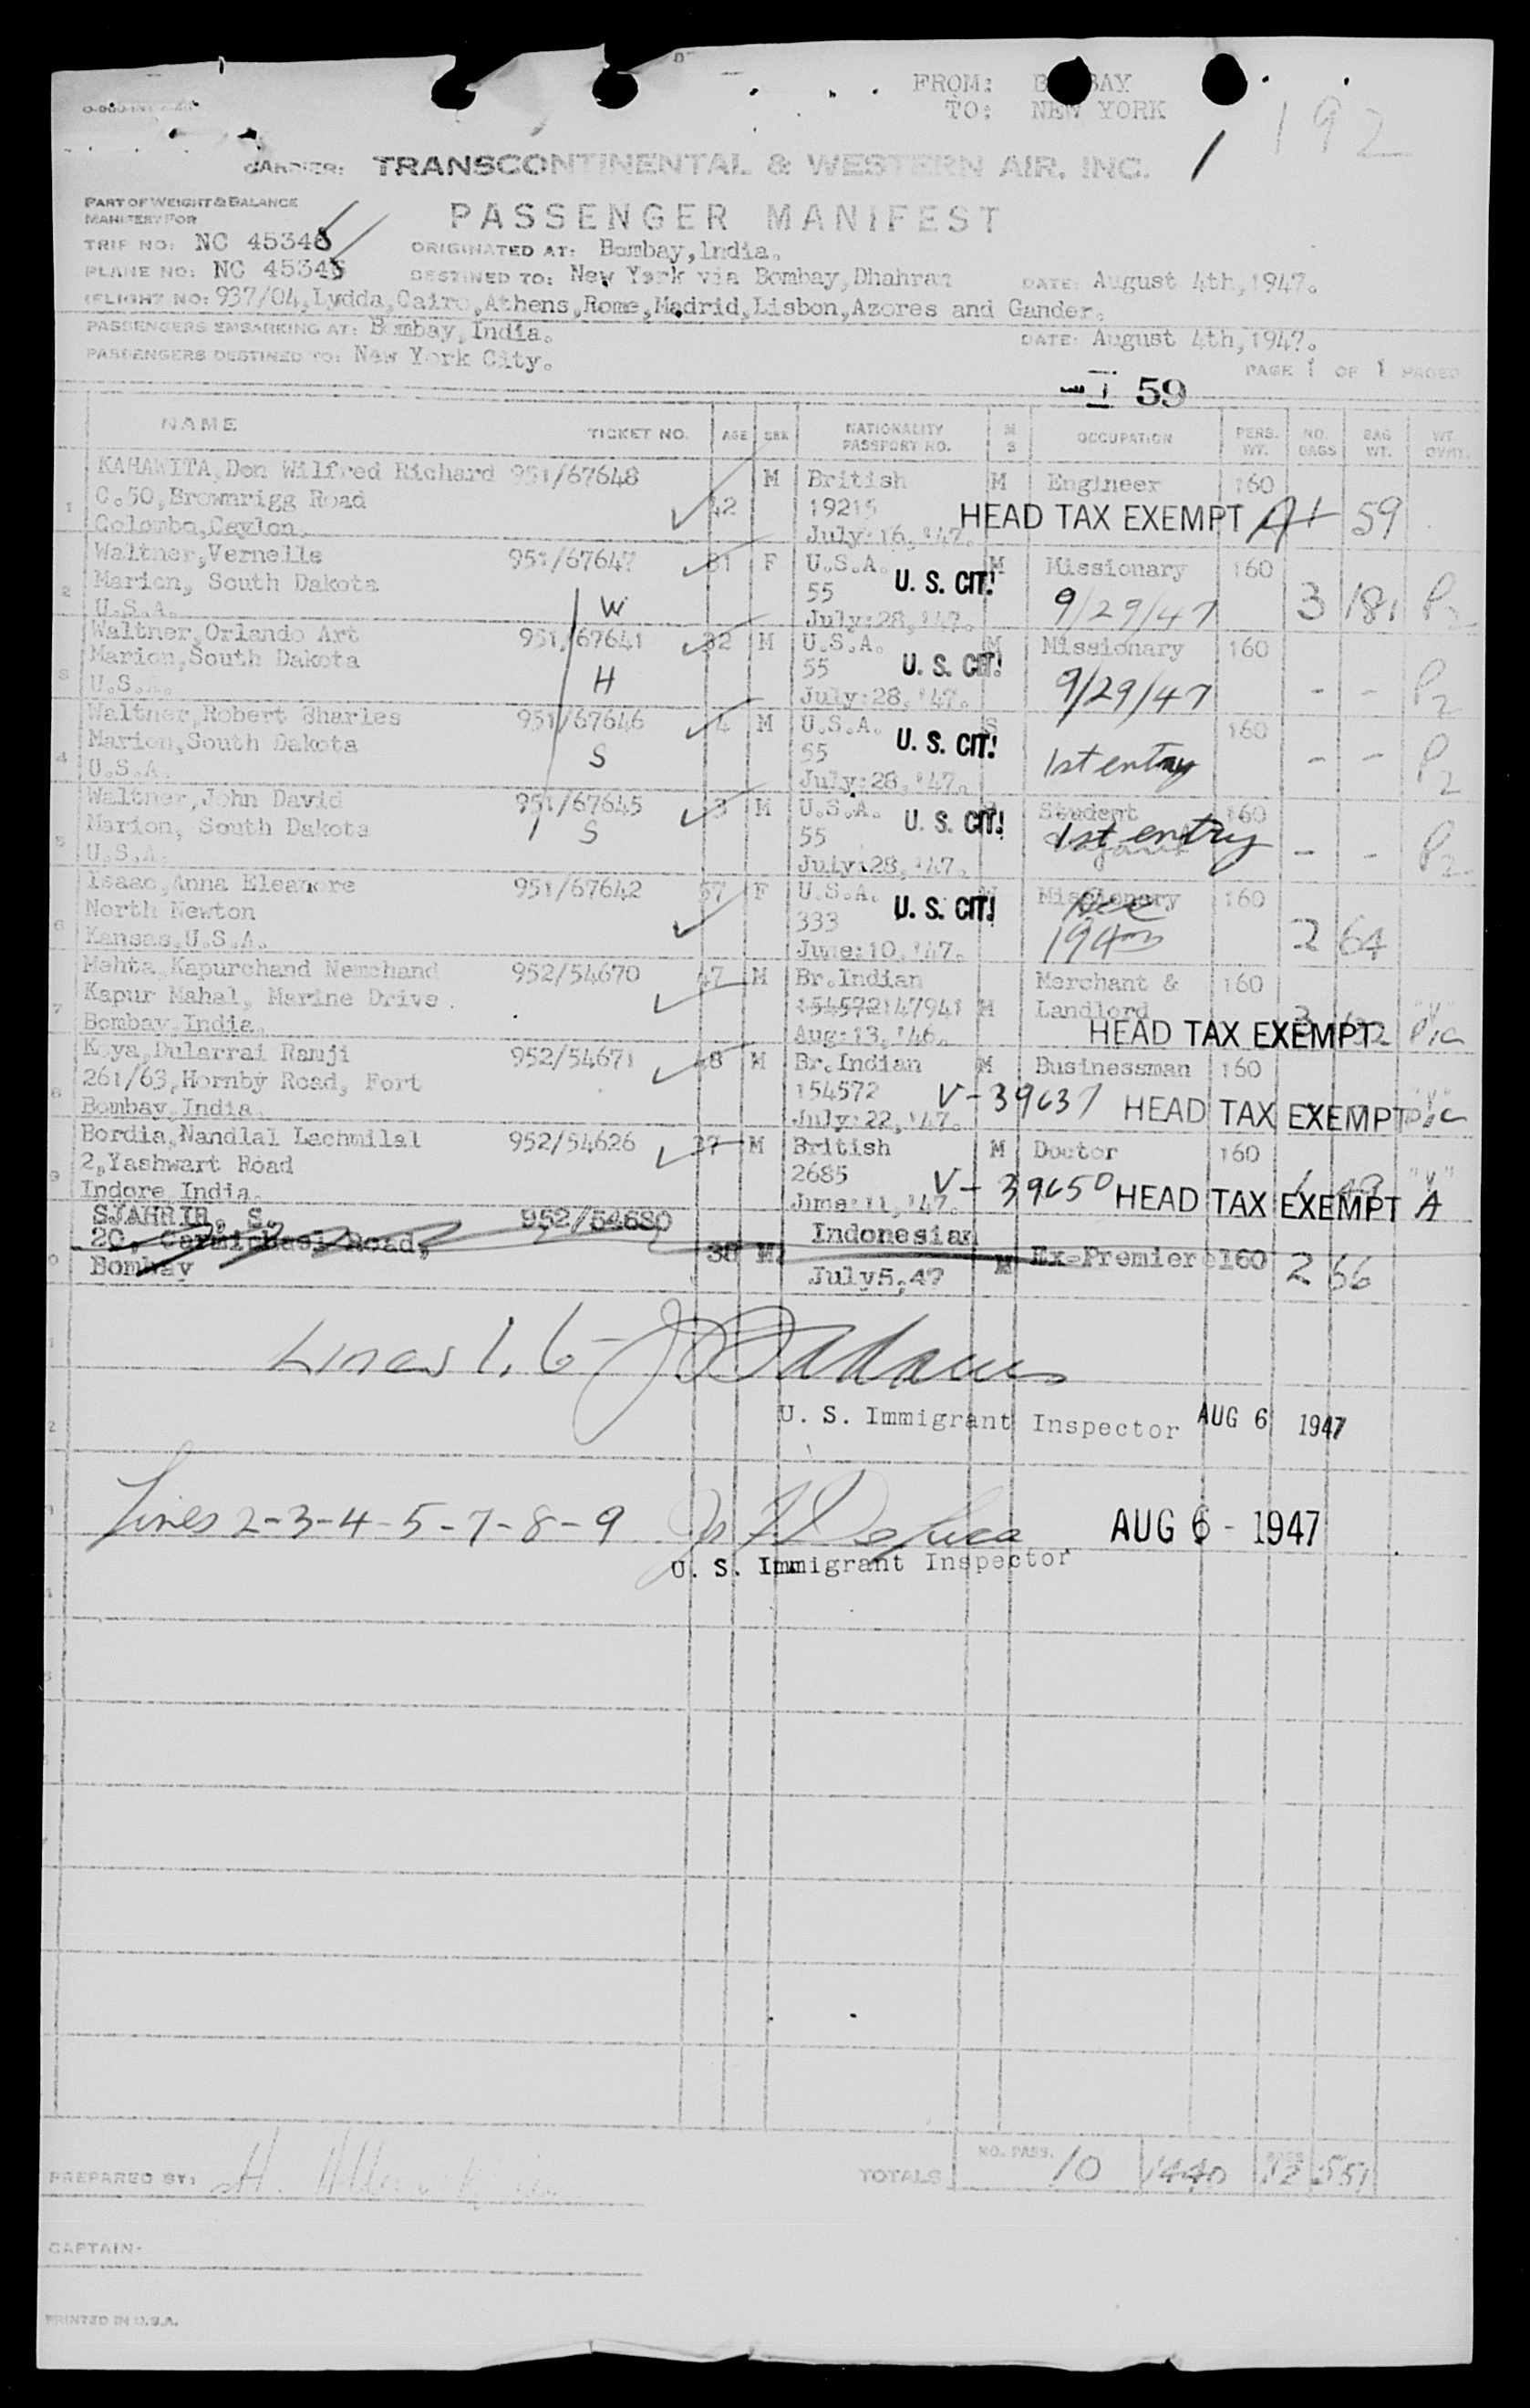 FROM: BOMBAY
TO: NEW YORK
192
CARRIER: TRANSCONTINENTAL & WESTERN AIR, INC.
PART OF WEIGHT & BALANCE
MANIFEST FOR
PASSENGER MANIFEST
TRIP NO: NC 45346 ORIGINATED AT: Bombay, India.
PLANE NO: NC 45346 DESTINED TO: New York via Bombay, Dhahran DATE: August 4th, 1947.
FLIGHT NO: 937/04, Lydda, Cairo, Athens, Rome, Madrid, Lisbon, Azores and Gander.
PASSENGERS EMBARKING AT: Bombay, India. DATE: August 4th, 1947.
PASSENGERS DESTINED TO: New York City.
PAGE 1 OF 1 PAGES
59
NAME TICKET NO. AGE SEX NATIONALITY PASSPORT NO. M S OCCUPATION PERS. WT. NO. BAGS BAG WT. WT.
1 KAHAWITA, Don Wilfred Richard 951/67648 M British M Engineer 160
C.50, Brownrigg Road 42 19215 HEAD TAX EXEMPT 59
Colombo, Ceylon. July:16,'47.
2 Waltner, Vernelle 951/67647 31 F U.S.A. M Missionary 160
Marion, South Dakota 55 U. S. CIT! 9/29/47 3 181 P2
U.S.A. W July:28,'47.
3 Waltner, Orlando Art 951/67641 32 M U.S.A. M Missionary 160
Marion, South Dakota 55 U. S. CIT! 9/29/47 - - P2
U.S.A. H July:28,'47.
4 Waltner, Robert Charles 951/67646 4 M U.S.A. S 160
Marion, South Dakota 55 U. S. CIT! 1st entry - - P2
U.S.A. S July:28,'47.
5 Waltner, John David 951/67645 3 M U.S.A. Student 160
Marion, South Dakota S 55 U. S. CIT! 1st entry - - P2
U.S.A. July:28,'47.
6 Isaac, Anna Eleanore 951/67642 57 F U.S.A. Missionary 160
North Newton 333 U. S. CIT! Dec 2 64
Kansas, U.S.A. June:10,'47.
7 Mehta, Kapurchand Nemchand 952/54670 47 M Br. Indian Merchant & 160
Kapur Mahal, Marine Drive. 154572 147941 M Landlord
Bombay, India. Aug:13,'46. HEAD TAX EXEMPT
8 Koya, Dularrai Ramji 952/54671 48 M Br. Indian M Businessman 160
261/63, Hornby Road, Fort 154572 V-39637 HEAD TAX EXEMPT
Bombay, India. July:22,'47.
9 Bordia, Nandlal Lachmilal 952/54626 37 M British M Doctor 160
2, Yashwart Road 2685 V-39650 HEAD TAX EXEMPT A
Indore, India. June:11,'47.
SJAHRIR, S. 952/54680 Indonesian
20, Carmichael Road, 38 M M Ex-Premier 160 2 66
Bombay July 5, 47
Lines 1, 6 Adams
U. S. Immigrant Inspector AUG 6 1947
Lines 2-3-4-5-7-8-9 AUG 6 - 1947
U. S. Immigrant Inspector
PREPARED BY: TOTALS NO. PASS. 10 1440 12 551
CAPTAIN-
PRINTED IN U.S.A.